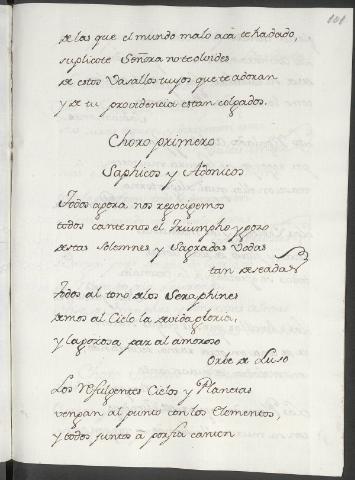 101
de las que el mundo malo acá te ha dado,
suplicote Señora no te olvides
de estos Vasallos tuyos que te adoran
y de tu providencia estan colgados.
Choro primero
Saphicos y Adonicos
Todos agora nos regocigemos
todos cantemos el Triumpho y gozo
destas Solemnes y Sagradas Vodas
tan deseadas
Todos al tono de los Seraphines
demos al Cielo la devida gloria,
y la gozosa paz al amoroso
Orbe de Luso
Los Refulgentes Cielos y Planetas
vengan al punto con los Elementos,
y todos juntos a porfia canten